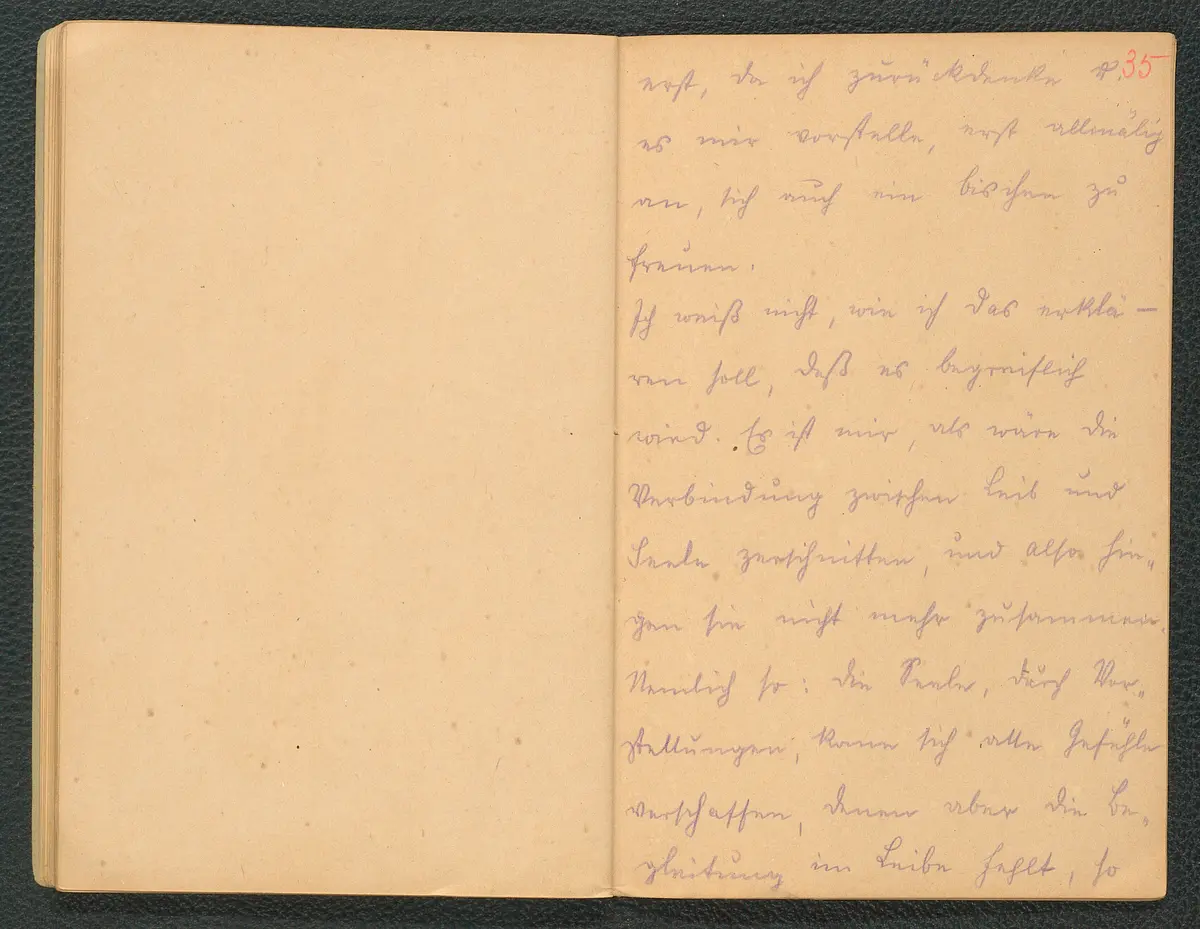 35
erst, da ich zurückdenke u.
es mir vorstelle, erst allmälig
an, sich auch ein bischen zu
freuen.
Ich weiß nicht, wie ich das erklä-
ren soll, daß es begreiflich
wird. Es ist mir, als wäre die
Verbindung zwischen Leib und
Seele zerschnitten, und also hin-
gen sie nicht mehr zusammen.
Nemlich so: die Seele, durch Vor-
stellungen, kann sich alle Gefühle
verschaffen, denen aber die Be-
gleitung im Leibe fehlt, so